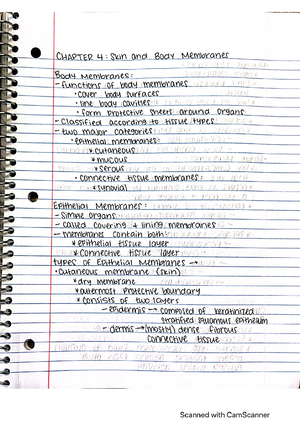 CHAPTER 4: Skin and Body Membranes
Body Membranes:
- Functions of body membranes
• cover body surfaces
• line body cavities
• form protective sheets around organs
- Classified according to tissue types
- two major categories
• Epithelial membranes:
* cutaneous
* mucous
* serous
• connective tissue membranes:
* synovial
Epithelial Membranes:
- Simple organs
- called covering & lining membranes
- membranes contain both:
* epithelial tissue layer
* connective tissue layer
types of Epithelial Membranes →
• cutaneous membrane (skin)
* dry membrane
* outermost protective boundary
* consists of two layers
- epidermis → composed of keratinized
stratified squamous epithelium
- dermis → (mostly) dense fibrous
connective tissue
Scanned with CamScanner